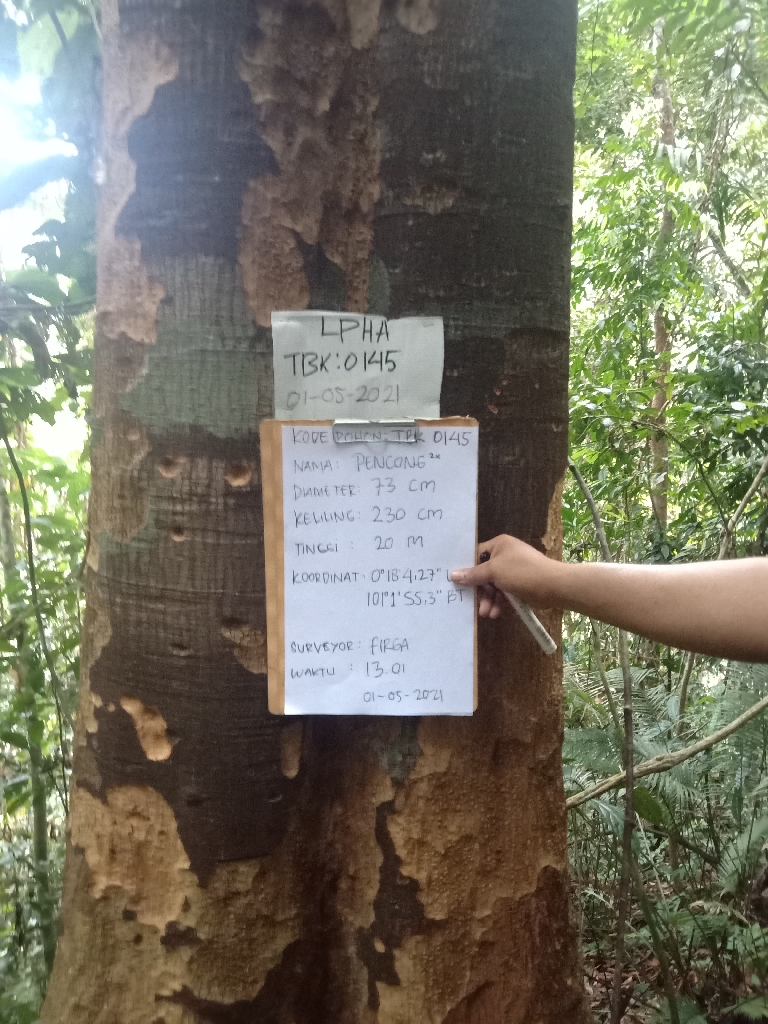 LPHA
TBK: 0145
01-05-2021
KODE POHON: TBK 0145
NAMA: PENCONG 2x
DIAMETER: 73 cm
KELILING: 230 cm
TINGGI : 20 M
KOORDINAT: 0°18'4,27" L
101°1'55,3" BT
SURVEYOR: FIRGA
WAKTU : 13.01
01-05-2021